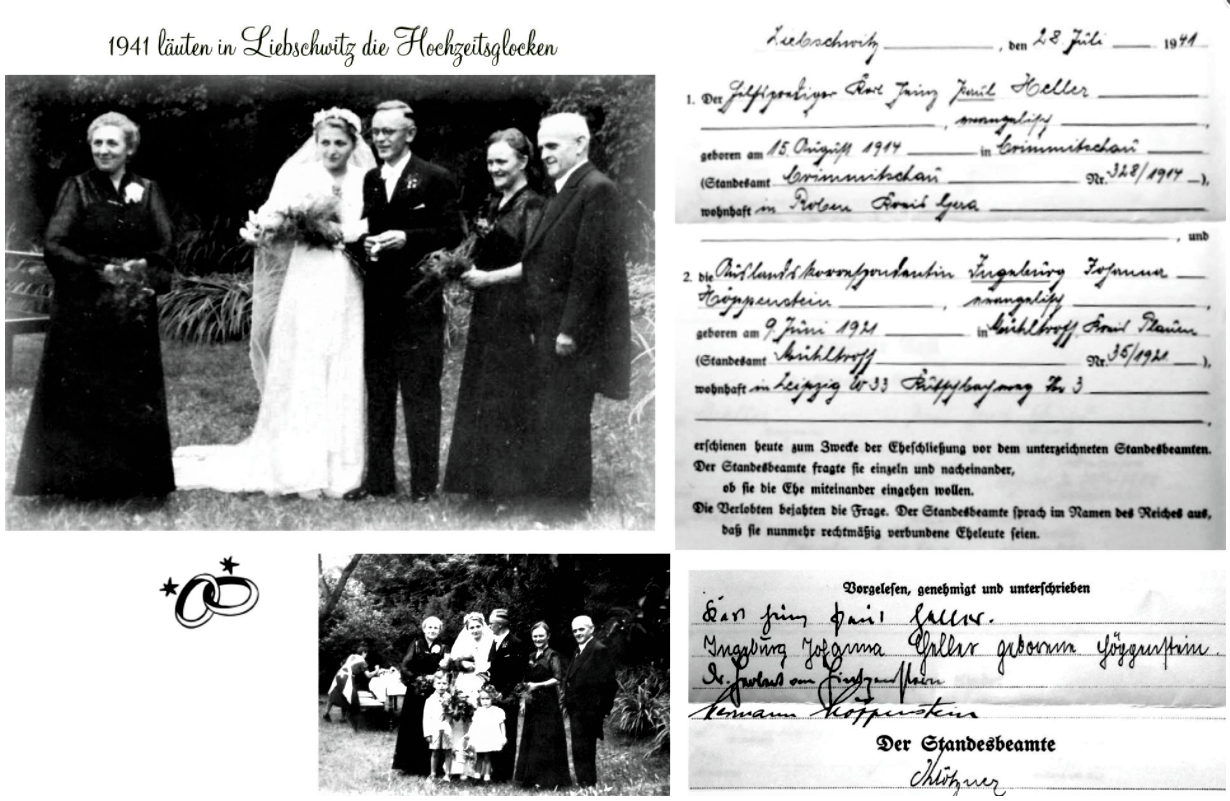 1941 läuten in Liebschwitz die Hochzeitsglocken
Liebschwitz, den 28. Juli 1941
1. Der Hilfsprediger Karl Heinz Paul Heller
, evangelisch
geboren am 15. August 1914 in Crimmitschau
(Standesamt Crimmitschau Nr. 328/1914),
wohnhaft in Roben Kreis Gera
, und
2. die Auslandskorrespondentin Ingeburg Johanna
Höppenstein, evangelisch
geboren am 9. Juni 1921 in Mühltroff Kreis Plauen
(Standesamt Mühltroff Nr. 35/1921),
wohnhaft in Leipzig W 33 Nr 3
erschienen heute zum Zwecke der Eheschließung vor dem unterzeichneten Standesbeamten.
Der Standesbeamte fragte sie einzeln und nacheinander,
ob sie die Ehe miteinander eingehen wollen.
Die Verlobten bejahten die Frage. Der Standesbeamte sprach im Namen des Reiches aus,
daß sie nunmehr rechtmäßig verbundene Eheleute seien.
Vorgelesen, genehmigt und unterschrieben
Karl Heinz Paul Heller.
Ingeburg Johanna Heller geborene Höppenstein.
Dr. Herbert von Hintzenstern
Hermann Höppenstein
Der Standesbeamte